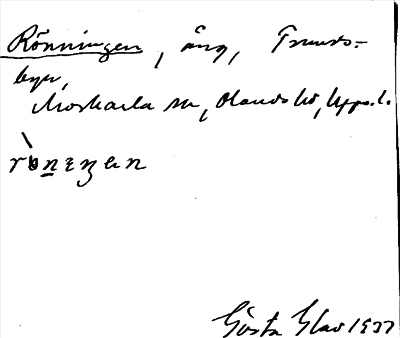 Rönningen, äng, Trunsta-
byn,
Morkarla sn, Olands hd, Upps. l.
rönɪŋən
Gösta Glav 1937